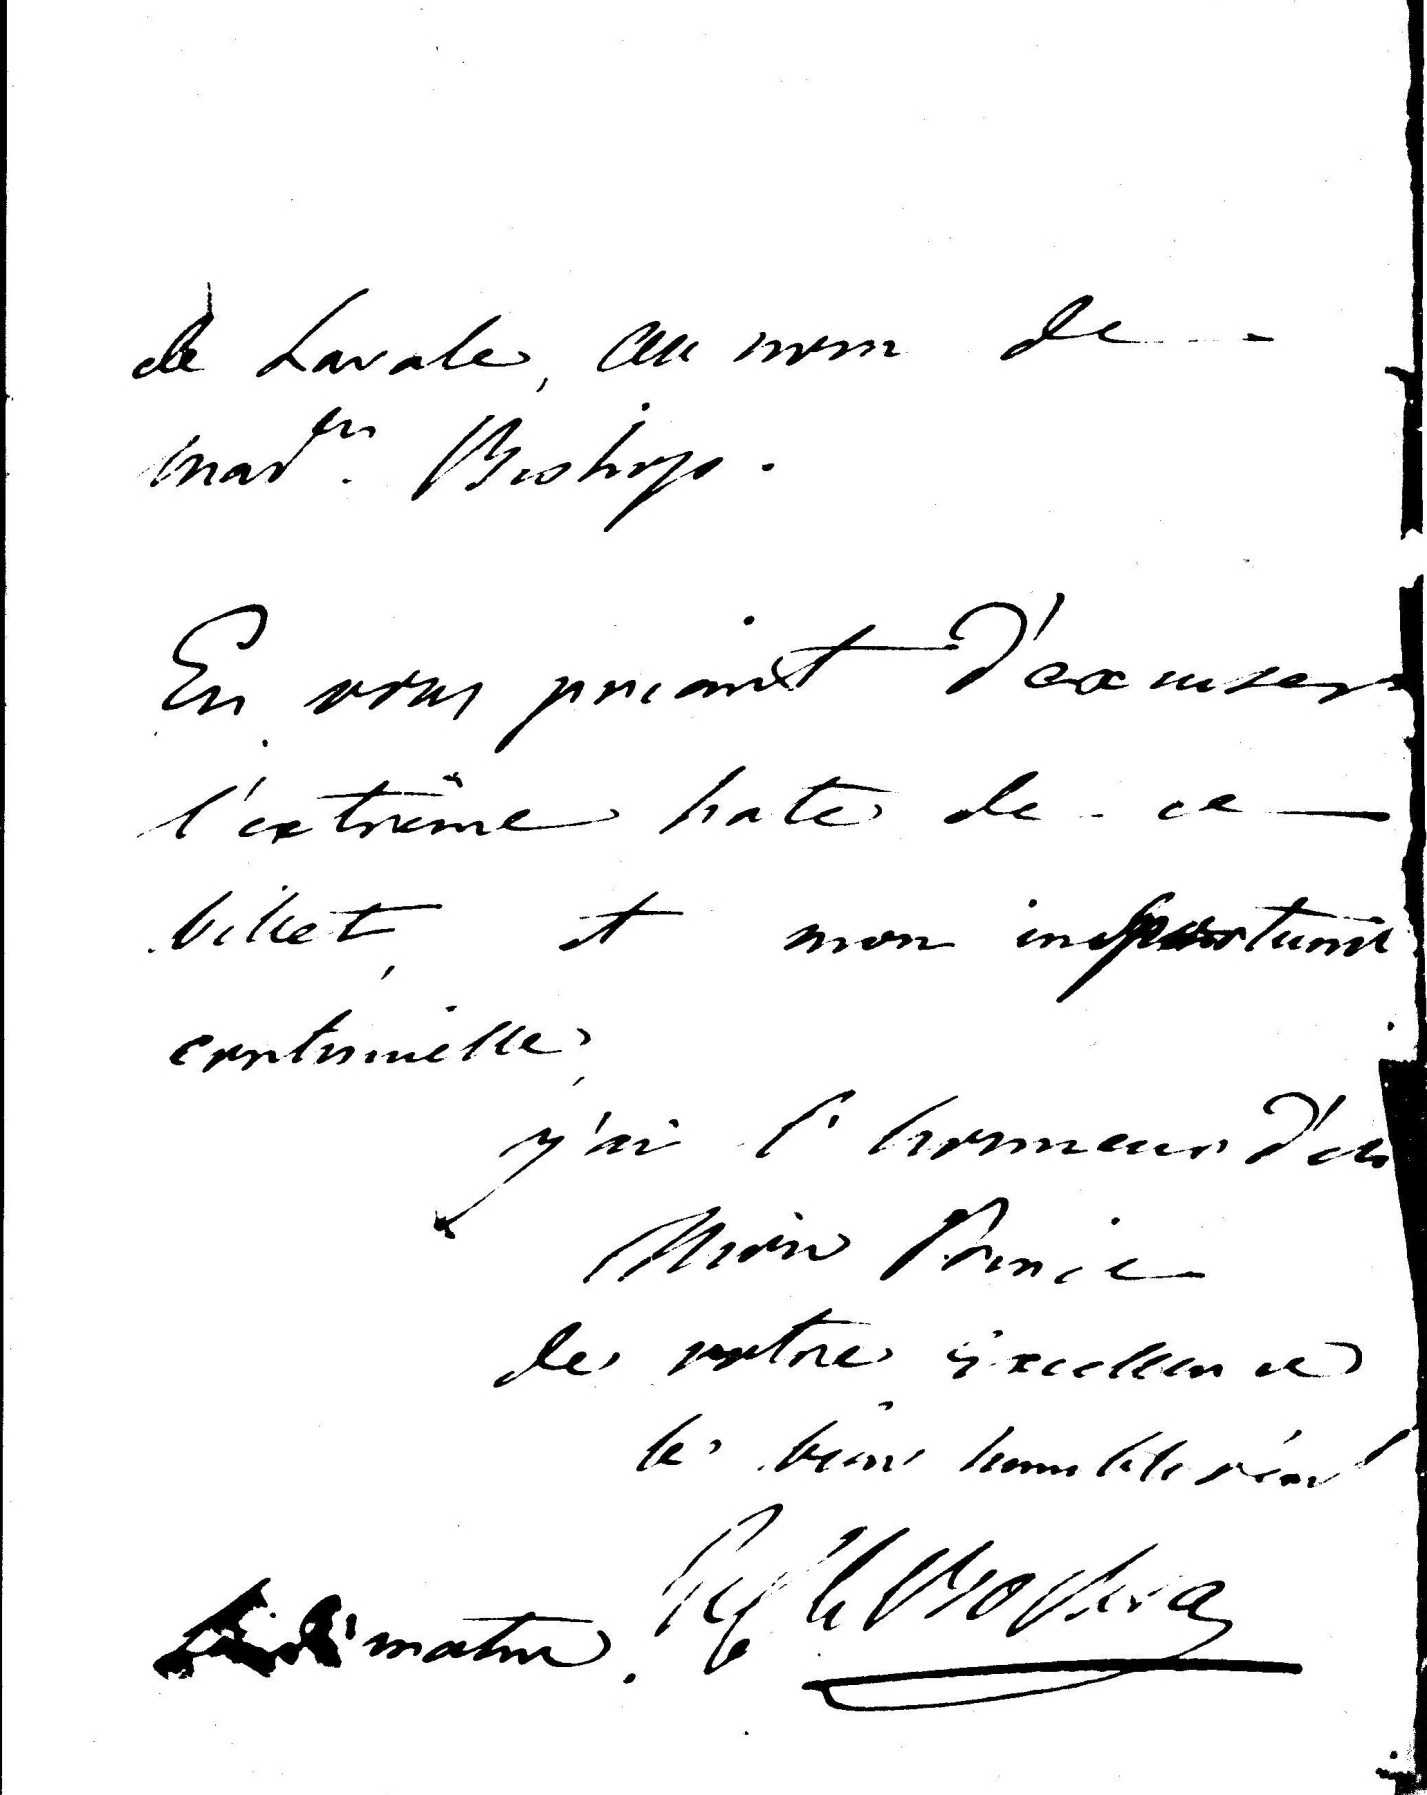 de Lavale, au nom de
Mad.en Bishop.
En vous priant d'excuser
l'extrême hate de ce
billet, et mon importunité
continuelle,
j'ai l'honneur d'etr
Mon Prince
de votre Excellence
le bien humble serv
matin.